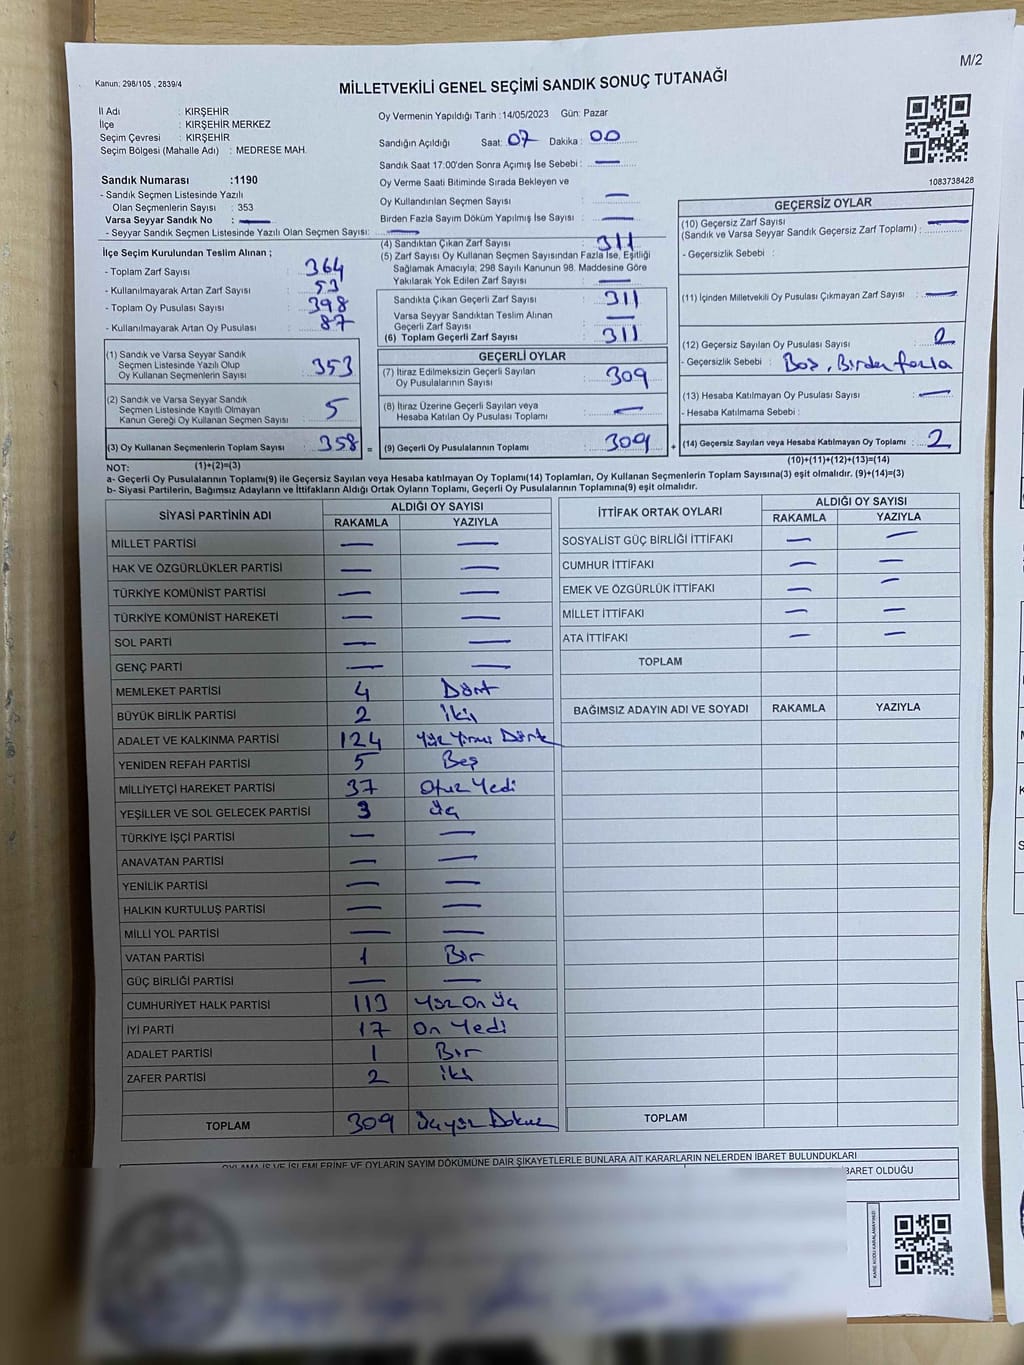 M/2
Kanun: 298/105 , 2839/4
MİLLETVEKİLİ GENEL SEÇİMİ SANDIK SONUÇ TUTANAĞI
İl Adı : KIRŞEHİR
İlçe : KIRŞEHİR MERKEZ
Seçim Çevresi : KIRŞEHİR
Seçim Bölgesi (Mahalle Adı) : MEDRESE MAH.
Sandık Numarası :1190
- Sandık Seçmen Listesinde Yazılı
Olan Seçmenlerin Sayısı : 353
Varsa Seyyar Sandık No : —
- Seyyar Sandık Seçmen Listesinde Yazılı Olan Seçmen Sayısı: —
Oy Vermenin Yapıldığı Tarih :14/05/2023 Gün: Pazar
Sandığın Açıldığı Saat: 07 Dakika : 00
Sandık Saat 17:00'den Sonra Açımış İse Sebebi : —
Oy Verme Saati Bitiminde Sırada Bekleyen ve
Oy Kullandırılan Seçmen Sayısı : —
Birden Fazla Sayım Döküm Yapılmış İse Sayısı : —
1083738428
İlçe Seçim Kurulundan Teslim Alınan ;
- Toplam Zarf Sayısı : 364
- Kullanılmayarak Artan Zarf Sayısı : 53
- Toplam Oy Pusulası Sayısı : 398
- Kullanılmayarak Artan Oy Pusulası : 87
(1) Sandık ve Varsa Seyyar Sandık
Seçmen Listesinde Yazılı Olup
Oy Kullanan Seçmenlerin Sayısı : 353
(2) Sandık ve Varsa Seyyar Sandık
Seçmen Listesinde Kayıtlı Olmayan
Kanun Gereği Oy Kullanan Seçmen Sayısı : 5
(3) Oy Kullanan Seçmenlerin Toplam Sayısı : 358 =
(4) Sandıktan Çıkan Zarf Sayısı : 311
(5) Zarf Sayısı Oy Kullanan Seçmen Sayısından Fazla İse, Eşitliği
Sağlamak Amacıyla; 298 Sayılı Kanunun 98. Maddesine Göre
Yakılarak Yok Edilen Zarf Sayısı : —
Sandıkta Çıkan Geçerli Zarf Sayısı : 311
Varsa Seyyar Sandıktan Teslim Alınan
Geçerli Zarf Sayısı : —
(6) Toplam Geçerli Zarf Sayısı : 311
GEÇERLİ OYLAR
(7) İtiraz Edilmeksizin Geçerli Sayılan
Oy Pusulalarının Sayısı : 309
(8) İtiraz Üzerine Geçerli Sayılan veya
Hesaba Katılan Oy Pusulası Toplamı : —
(9) Geçerli Oy Pusulalarının Toplamı : 309 +
GEÇERSİZ OYLAR
(10) Geçersiz Zarf Sayısı —
(Sandık ve Varsa Seyyar Sandık Geçersiz Zarf Toplamı) :
- Geçersizlik Sebebi :
(11) İçinden Milletvekili Oy Pusulası Çıkmayan Zarf Sayısı : —
(12) Geçersiz Sayılan Oy Pusulası Sayısı : 2
- Geçersizlik Sebebi : Boş, Birden fazla
(13) Hesaba Katılmayan Oy Pusulası Sayısı : —
- Hesaba Katılmama Sebebi :
(14) Geçersiz Sayılan veya Hesaba Katılmayan Oy Toplamı : 2
NOT: (1)+(2)=(3) (10)+(11)+(12)+(13)=(14)
a- Geçerli Oy Pusulalarının Toplamı(9) ile Geçersiz Sayılan veya Hesaba katılmayan Oy Toplamı(14) Toplamları, Oy Kullanan Seçmenlerin Toplam Sayısına(3) eşit olmalıdır. (9)+(14)=(3)
b- Siyasi Partilerin, Bağımsız Adayların ve İttifakların Aldığı Ortak Oyların Toplamı, Geçerli Oy Pusulalarının Toplamına(9) eşit olmalıdır.
SİYASİ PARTİNİN ADI ALDIĞI OY SAYISI
RAKAMLA YAZIYLA
MİLLET PARTİSİ — —
HAK VE ÖZGÜRLÜKLER PARTİSİ — —
TÜRKİYE KOMÜNİST PARTİSİ — —
TÜRKİYE KOMÜNİST HAREKETİ — —
SOL PARTİ — —
GENÇ PARTİ — —
MEMLEKET PARTİSİ 4 Dört
BÜYÜK BİRLİK PARTİSİ 2 İki
ADALET VE KALKINMA PARTİSİ 124 Yüz Yirmi Dört
YENİDEN REFAH PARTİSİ 5 Beş
MİLLİYETÇİ HAREKET PARTİSİ 37 Otuz Yedi
YEŞİLLER VE SOL GELECEK PARTİSİ 3 Üç
TÜRKİYE İŞÇİ PARTİSİ — —
ANAVATAN PARTİSİ — —
YENİLİK PARTİSİ — —
HALKIN KURTULUŞ PARTİSİ — —
MİLLİ YOL PARTİSİ — —
VATAN PARTİSİ 1 Bir
GÜÇ BİRLİĞİ PARTİSİ — —
CUMHURİYET HALK PARTİSİ 113 Yüz On Üç
İYİ PARTİ 17 On Yedi
ADALET PARTİSİ 1 Bir
ZAFER PARTİSİ 2 İki
TOPLAM 309 Üçyüz Dokuz
İTTİFAK ORTAK OYLARI ALDIĞI OY SAYISI
RAKAMLA YAZIYLA
SOSYALİST GÜÇ BİRLİĞİ İTTİFAKI — —
CUMHUR İTTİFAKI — —
EMEK VE ÖZGÜRLÜK İTTİFAKI — —
MİLLET İTTİFAKI — —
ATA İTTİFAKI — —
TOPLAM
BAĞIMSIZ ADAYIN ADI VE SOYADI RAKAMLA YAZIYLA
TOPLAM
OYLAMA İŞ VE İŞLEMLERİNE VE OYLARIN SAYIM DÖKÜMÜNE DAİR ŞİKAYETLERLE BUNLARA AİT KARARLARIN NELERDEN İBARET BULUNDUKLARI
İBARET OLDUĞU
KARE KODU KARALAMAYINIZ!